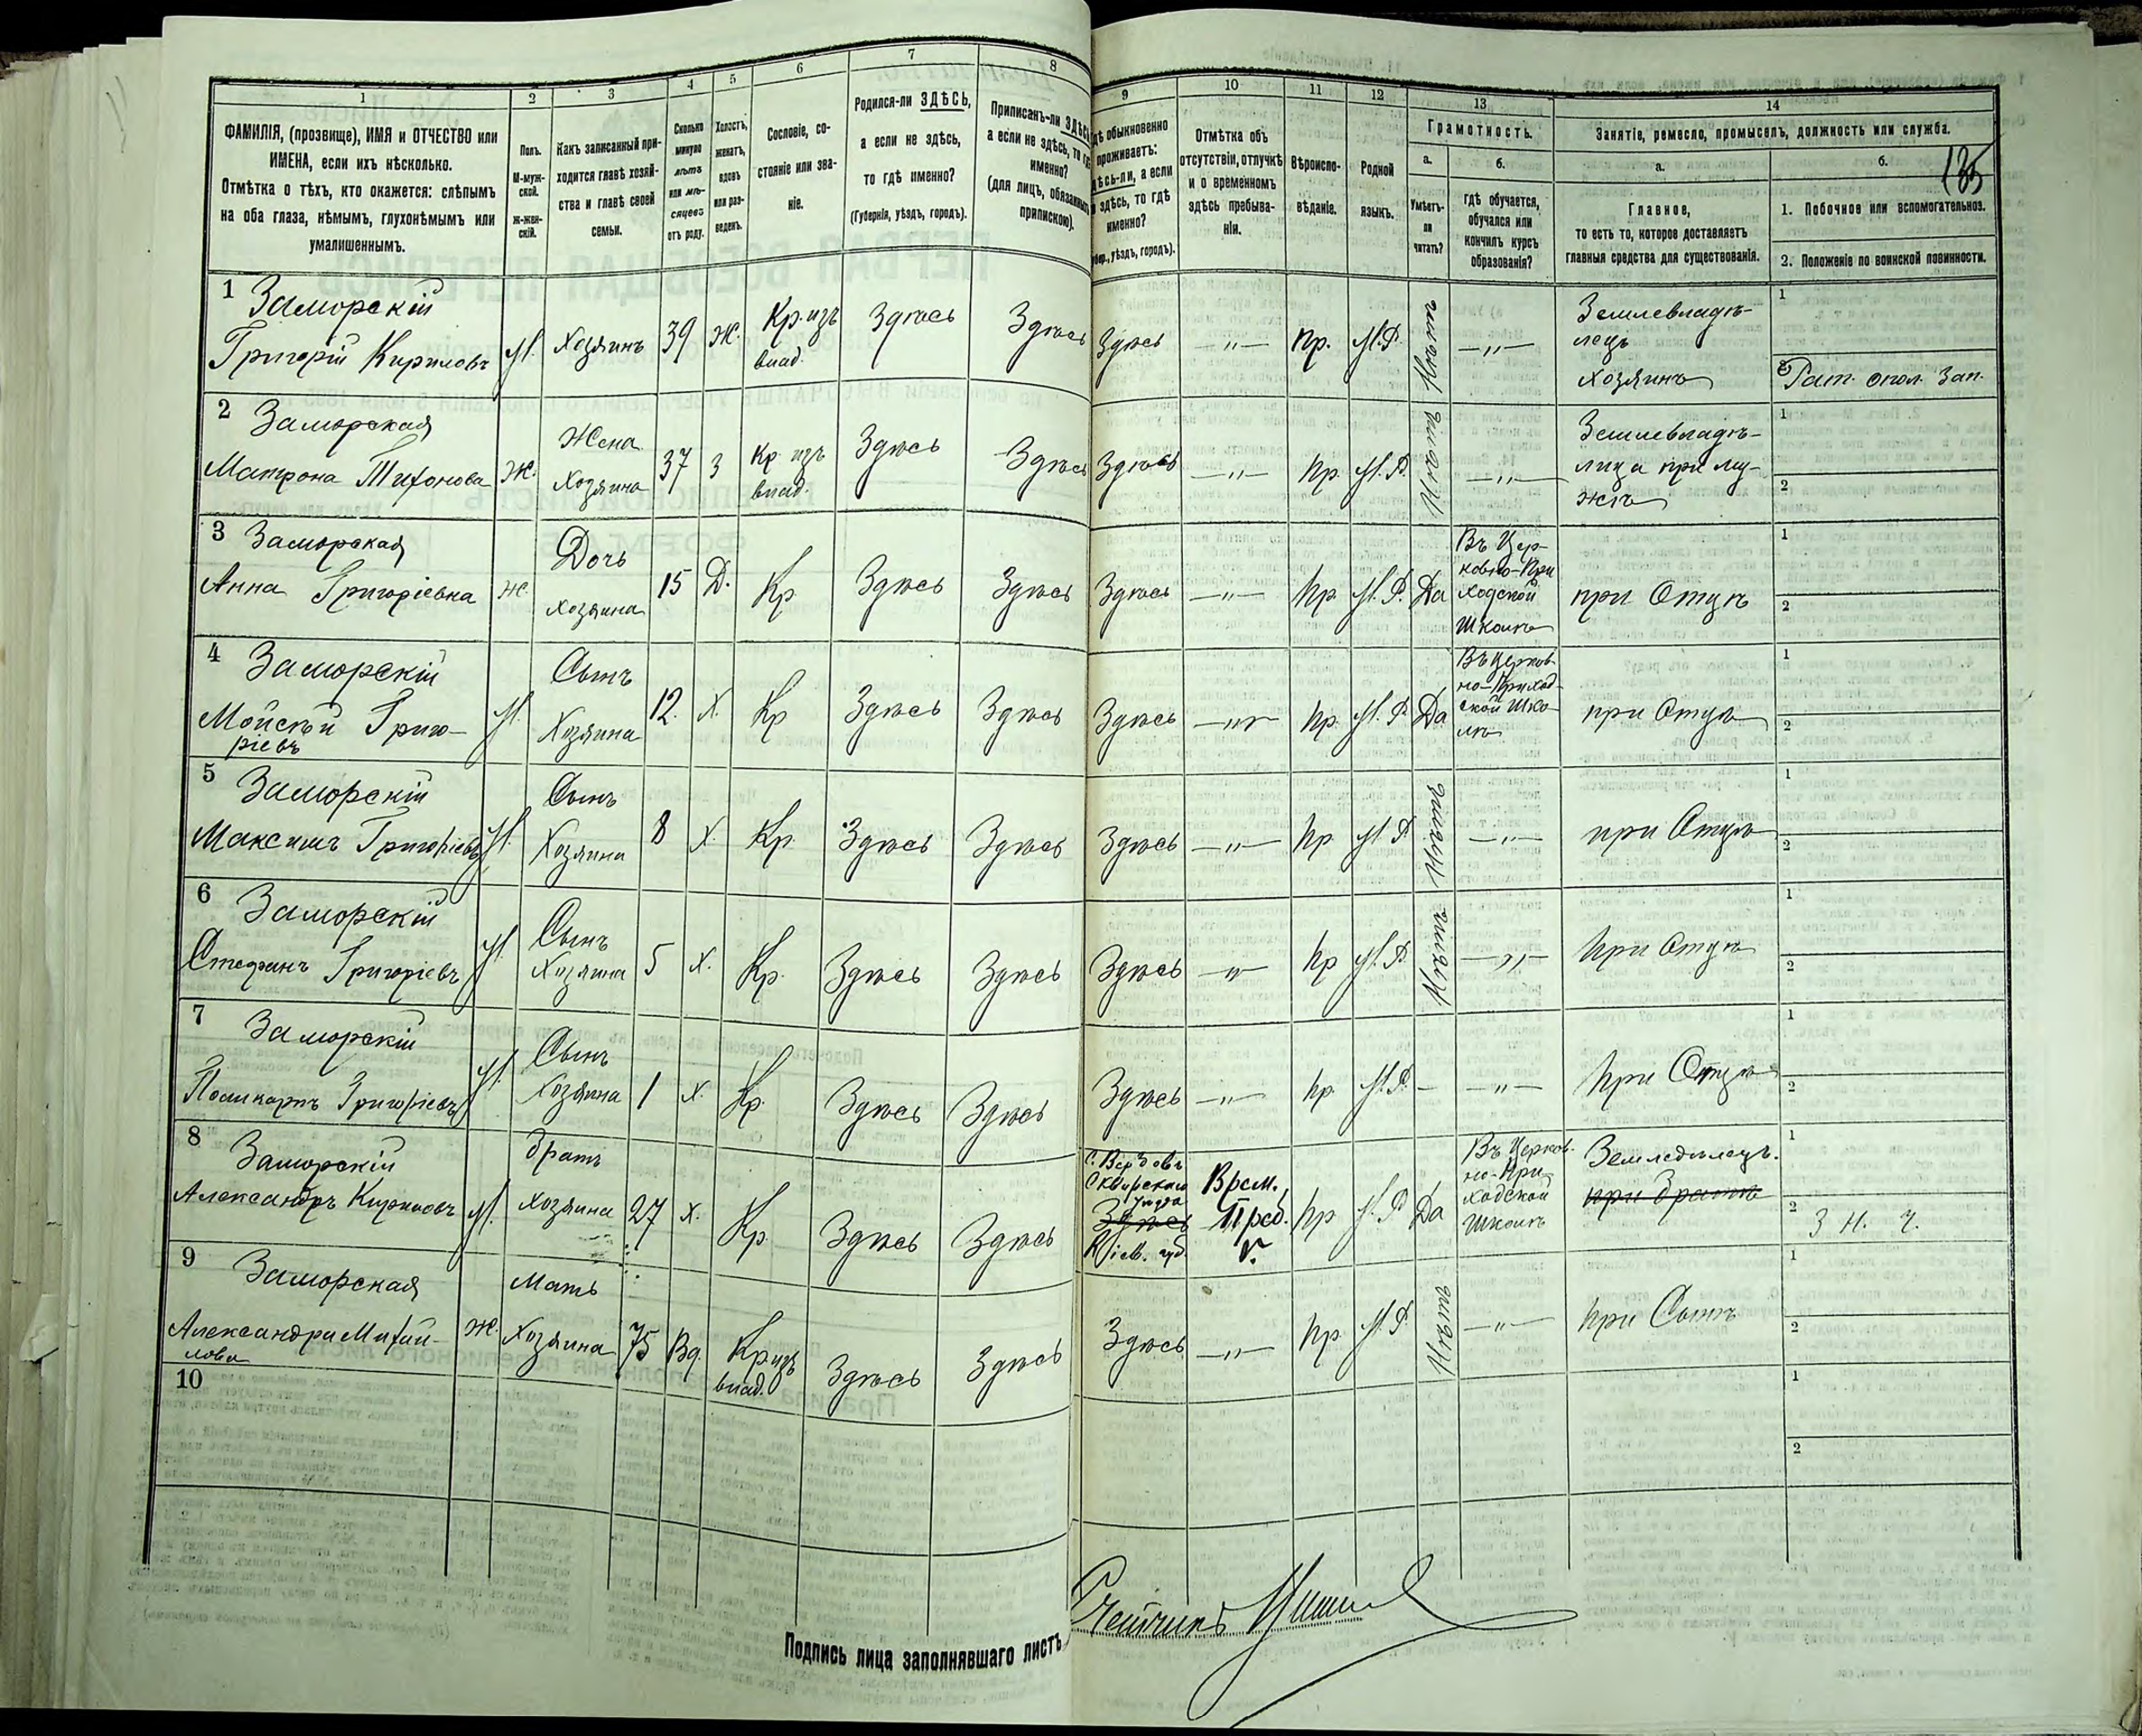 1 2 3 4 5 6 7 8
ФАМИЛІЯ, (прозвище), ИМЯ и ОТЧЕСТВО или
ИМЕНА, если ихъ нѣсколько.
Отмѣтка о тѣхъ, кто окажется: слѣпымъ
на оба глаза, нѣмымъ, глухонѣмымъ или
умалишеннымъ.
Полъ.
М-муж-
ской.
ж-жен-
скій.
Какъ записанный при-
ходится главѣ хозяй-
ства и главѣ своей
семьи.
Сколько
минуло
лѣтъ
или мѣ-
сяцевъ
отъ роду.
Холостъ,
женатъ,
вдовъ
или раз-
веденъ.
Сословіе, со-
стояніе или зва-
ніе.
Родился-ли ЗДѢСЬ,
а если не здѣсь,
то гдѣ именно?
(Губернія, уѣздъ, городъ).
Приписанъ-ли ЗДѢСЬ
а если не здѣсь, то гдѣ
именно?
(для лицъ, обязанныхъ
припискою).
9 10 11 12 13 14
обыкновенно
проживаетъ:
а если
здѣсь, то гдѣ
именно?
уѣздъ, городъ).
Отмѣтка объ
отсутствіи, отлучкѣ
и о временномъ
здѣсь пребыва-
ніи.
Вѣроиспо-
вѣданіе.
Родной
языкъ.
Грамотность.
а.
Умѣетъ-
ли
читать?
б.
гдѣ обучается,
обучался или
кончилъ курсъ
образованія?
Занятіе, ремесло, промыселъ, должность или служба.
а.
Главное,
то есть то, которое доставляетъ
главныя средства для существованія.
б.
135
1. Побочное или вспомогательное.
2. Положеніе по воинской повинности.
1 Заморскій
Григорій Кириловъ М. Хозяинъ 39 Ж. Кр. изъ
влад. Здѣсь Здѣсь Здѣсь —"— Пр. М.Р. Нѣтъ —"— Землевладѣ-
лецъ
Хозяинъ
1
2 Рат. опол. зап.
2 Заморская
Матрона Тихонова Ж. Жена
Хозяина 37 З Кр изъ
влад. Здѣсь Здѣсь Здѣсь —"— Пр. М.Р. —"— Землевладѣ-
лица при му-
жѣ
1
2
3 Заморская
Анна Григоріевна Ж Дочь
хозяина 15 Д. Кр Здѣсь Здѣсь Здѣсь —"— Пр М.Р. Да Въ Цер-
ковно-При
ходской
Школѣ при Отцѣ
1
2
4 Заморскій
Мойсѣй Григо-
ріевъ М. Сынъ
Хозяина 12. Х. Кр Здѣсь Здѣсь Здѣсь —"— Пр. М.Р. Да Въ Церков
но-Приход-
ской Шко-
лѣ при Отцѣ
1
2
5 Заморскій
Максимъ Григоріевъ М. Сынъ
Хозяина 8 Х. Кр. Здѣсь Здѣсь Здѣсь —"— Пр М Р —"— при Отцѣ
1
2
6 Заморскій
Стефанъ Григоріевъ М. Сынъ
Хозяина 5 Х. Кр. Здѣсь Здѣсь Здѣсь —"— Пр М.Р. —"— При Отцѣ
1
2
7 Заморскій
Поликарпъ Григоріевъ М. Сынъ
Хозяина 1 Х. Кр. Здѣсь Здѣсь Здѣсь —"— Пр. М.Р. — —"— При Отцѣ
1
2
8 Заморскій
Александръ Кириловъ М. братъ
хозяина 27 Х. Кр. Здѣсь Здѣсь
Сквирскаго
уѣзда
Здѣсь
Кіев. губ. Врем.
Преб. Пр М.Р Да Въ Церков-
но-При
ходской
Школѣ Земледѣлецъ.
при братѣ
1
2 З Н. Ч.
9 Заморская
Александра Михай-
лова Ж. Мать
Хозяина 75 Вд. Кр изъ
влад. Здѣсь Здѣсь Здѣсь —"— Пр М.Р. —"— при Сынѣ
1
2
10
1
2
Счетчикъ
Подпись лица заполнявшаго листъ